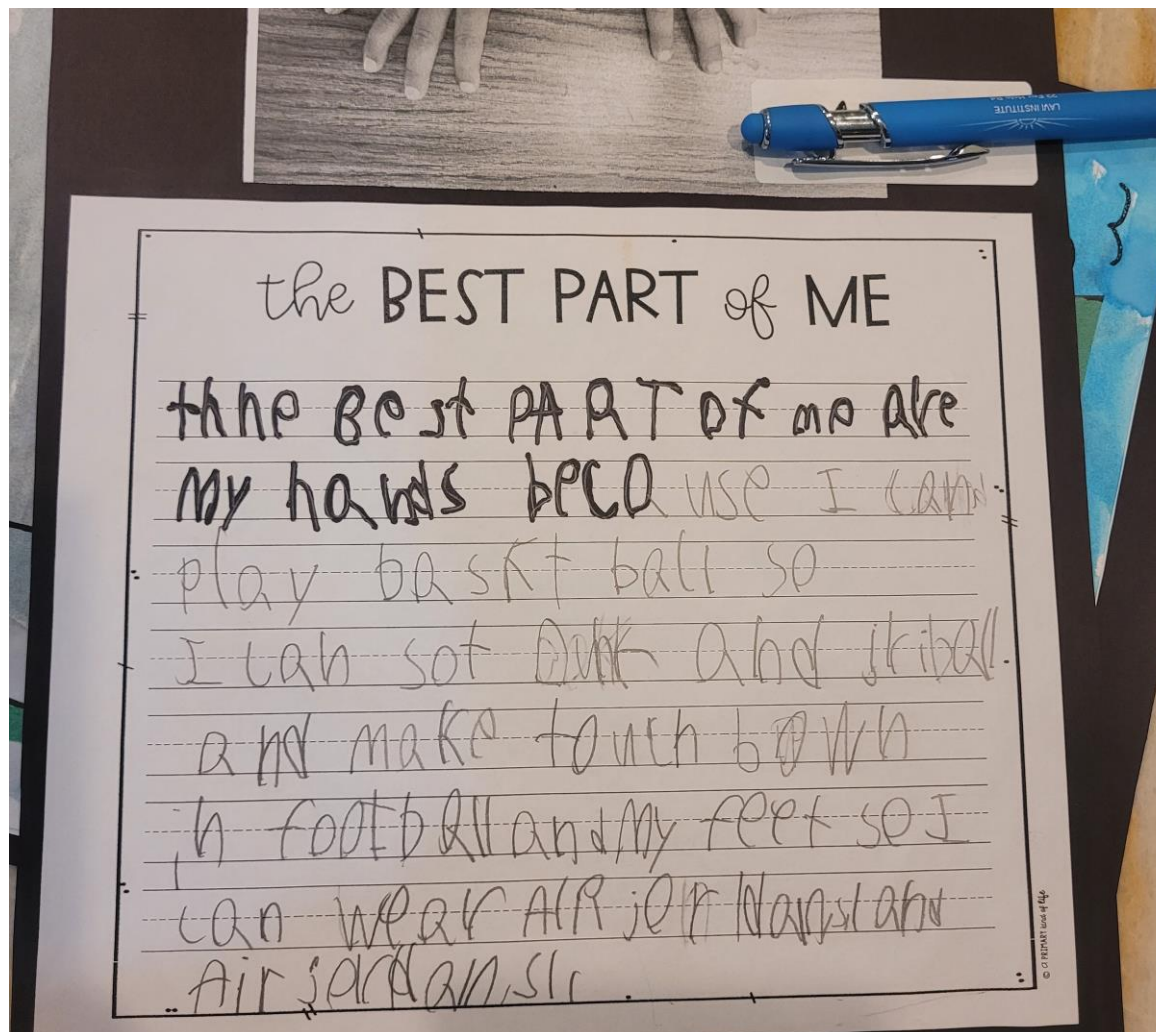 LAVI INSTITUTE
the BEST PART of ME
thhe Best PART OF me are
My hands beca use I can
play baskt ball so
I can sot Dunk and
and make touch bown
in football and My feet so I
can wear AIR and
Air jordans
© CI PRIMARY kind of life